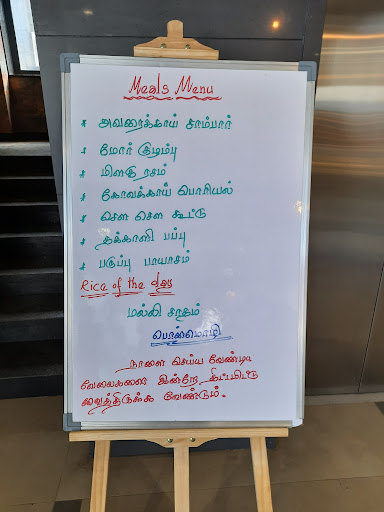 Meals Menu
* அவரைக்காய் சாம்பார்
* மோர் குழம்பு
* மிளகு ரசம்
* கோவக்காய் பொரியல்
* சௌ சௌ கூட்டு
* தக்காளி பப்பு
* பருப்பு பாயாசம்
Rice of the day
மல்லி சாதம்
பொன்மொழி
நாளை செய்ய வேண்டிய
வேலைகளை இன்றே திட்டமிட்டு
வைத்திருக்க வேண்டும்.